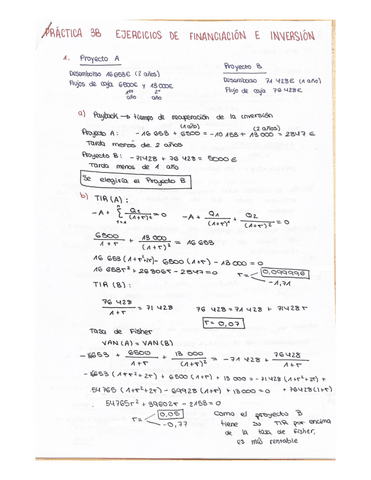 PRÁCTICA 3B EJERCICIOS DE FINANCIACIÓN E INVERSIÓN
1. Proyecto A
Desembolso 16 653€ (2 años)
Flujos de caja 6500€ y 13 000€
1er año 2º año
Proyecto B
Desembolso 71 428€ (1 año)
Flujo de caja 76 428€
a) Payback → tiempo de recuperación de la inversión
(1 año) (2 años)
Proyecto A: -16 653 + 6500 = -10 153 + 13 000 = 2847 €
Tarda menos de 2 años
Proyecto B: -71428 + 76 428 = 5000€
Tarda menos de 1 año
Se elegiría el Proyecto B
b) TIR (A):
6500/1+r + 13 000/(1+r)² = 16 653
16 653 (1+r²+2r) - 6500 (1+r) - 13 000 = 0
16 653r² + 26806r - 2847 = 0
r = 0,099996
-1,71
TIR (B):
76 428/1+r = 71 428 76 428 = 71 428 + 71428r
r = 0,07
Tasa de Fisher
VAN (A) = VAN (B)
54765 (1+r²+2r) - 69928 (1+r) + 13 000 = 0
54765r² + 39602r - 2163 = 0
r = 0,05
-0,77
Como el proyecto B
tiene su TIR por encima
de la tasa de Fisher,
es más rentable